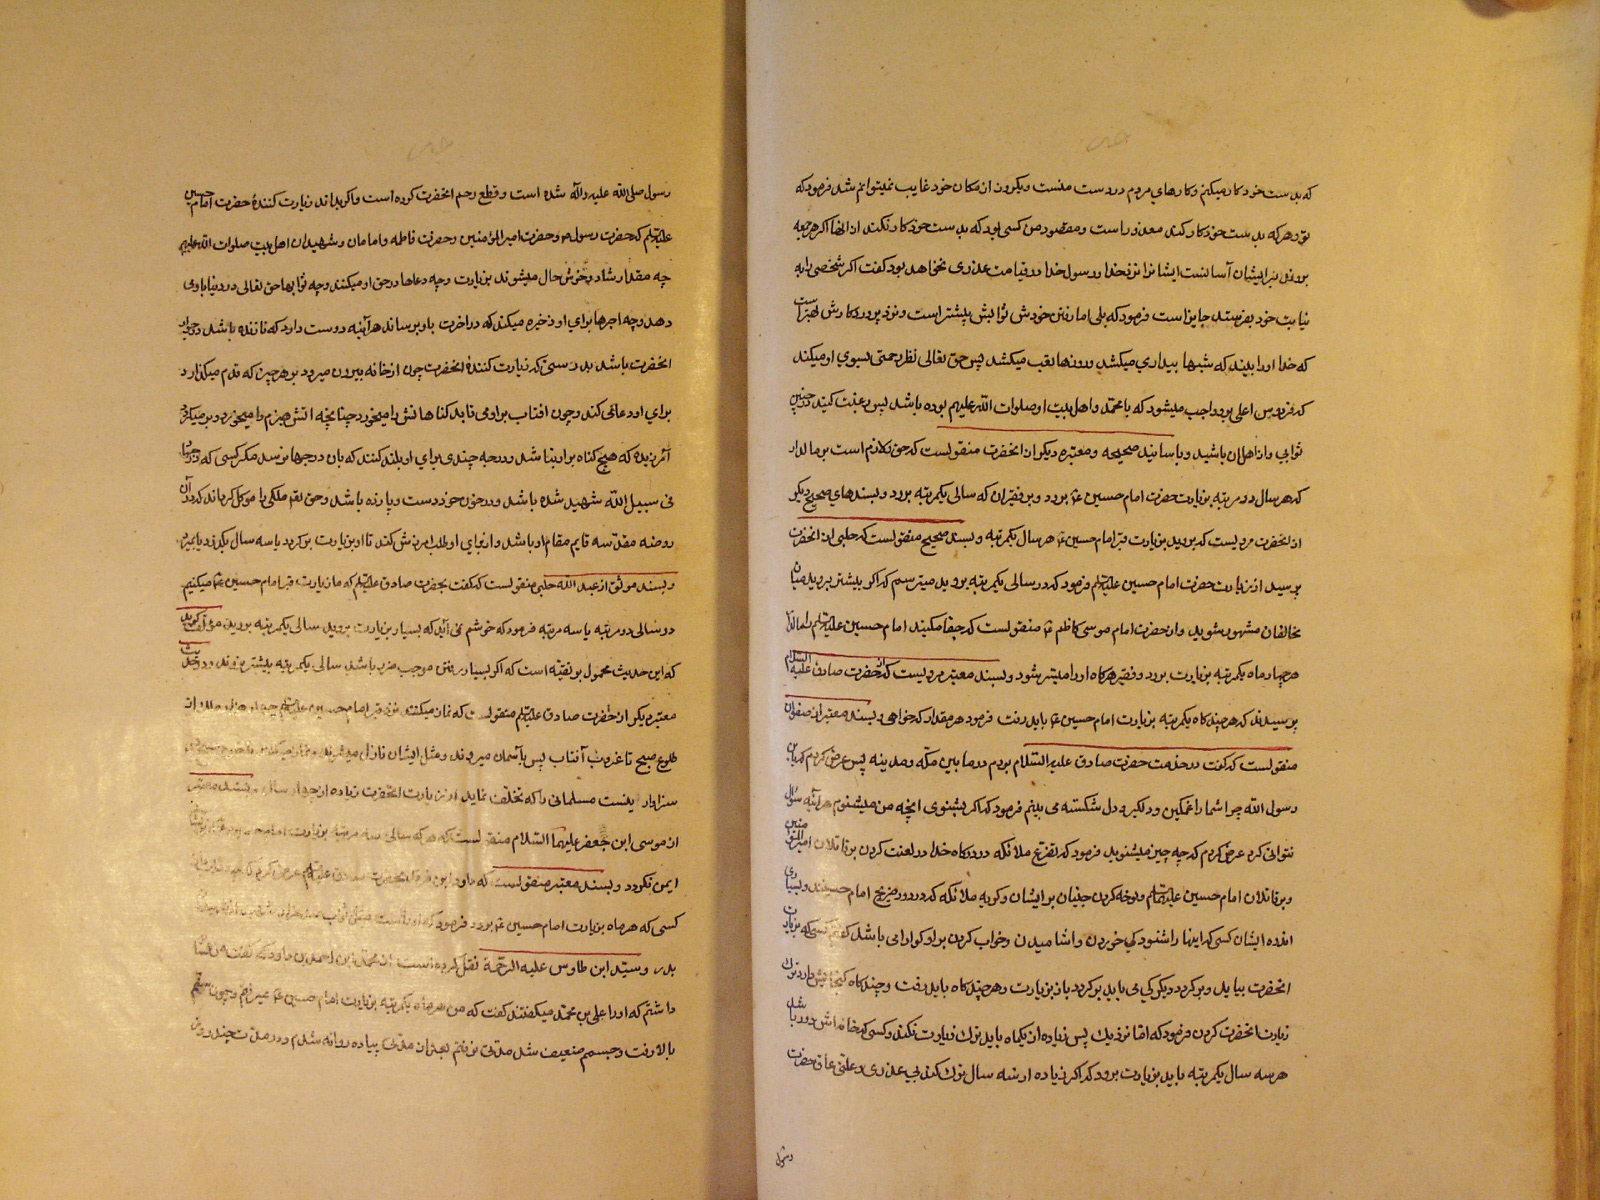 که بدست خود کار میکنم و کارهای مردم در دست منست و یکروز از مکان خود غایب نمیتوانم شد فرمود که
تو و هر که بدست خود کار کند معذور است و مقصود من کسی بود که بدست خود کار نکند از آنها اکر هر جمعه
برود بر ایشان آسانست ایشانرا نزد خدا و رسول خدا در قیامت عذری نخواهد بود کفت اکر شخصی را به
نیابت خود بفرستد جایز است فرمود که بلی اما رفتن خودش ثوابش بیشتر است و نزد پروردکارش بهتر است
که خدا او را بیند که شبها بیداری میکشد و روزها تعب میکشد پس حق تعالی نظر رحمتی بسوی او میکند
که فردوس اعلی برو واجب میشود که با محمد و اهل بیت او صلوات الله علیهم بوده باشد پس رغبت کنید در چنین
ثوابی و از اهل ان باشید و با سانید صحیحه و معتبره دیکر از انحضرت منقولست که حق و لازم است بر مالدار
که هر سال دو مرتبه بزیارت حضرت امام حسین ع برود و بر فقیر ان که سالی یکمرتبه برود و بسندهای صحیح دیکر
از انحضرت مرویست که بروید بزیارت قبر امام حسین ع هر سال یکمرتبه و بسند صحیح منقولست که حلبی از انحضرت
پرسید از زیارت حضرت امام حسین علیه السلام فرمود که در سالی یکمرتبه بروید میترسم که اکر بیشتر بروید میان
مخالفان مشهور شوید و از حضرت امام موسی کاظم ع منقولست که جفا مکنید امام حسین علیه السلام را مالدار
هر چهار ماه یکمرتبه بزیارت برود و فقیر هرکاه او را میسر شود و بسند معتبر مرویست که از حضرت صادق علیه السلام
پرسیدند که هر چندکاه یکمرتبه بزیارت امام حسین ع باید رفت فرمود هر مقدار که خواهی و بسند معتبر از صفوان
منقولست که کفت در خدمت حضرت صادق علیه السلام بودم در مابین مکه و مدینه پس عرض کردم که یا بن
رسول الله چرا شما را غمکین و دلکیر و دل شکسته می بینم فرمود که اکر بشنوی انچه من میشنوم هر آینه سؤال
نتوانی کرد عرض کردم که چه چیز میشنوید فرمود که تضرع ملائکه در درکاه خدا در لعنت کردن بر قاتلان امیر المؤمنین
و بر قاتلان امام حسین علیه السلام و نوحه کردن جنیان بر ایشان و کریه ملائکه که در دور ضریح امام حسینند و بسیاری
اندوه ایشان کسی که اینها را شنود کی خوردن و اشامیدن و خواب کردن بر او کوارا می باشد کفتم کسی که بزیارت
انحضرت بیاید و برکردد دیکر کی می باید برکردد باز بزیارت و هر چندکاه باید رفت و چندکاه کنجایش دارد ترک
زیارت انحضرت کردن فرمود که اما نزدیک پس زیاده از یکماه باید ترک زیارت نکند و کسی که خانه اش دور باشد
هر سه سال یکمرتبه باید بزیارت برود که اکر زیاده از سه سال ترک کند بی عذری و علتی عاق حضرت
رسول
رسول صلی الله علیه و اله شده است و قطع رحم انحضرت کرده است و اکر بداند زیارت کنندهٔ حضرت امام حسین
علیه السلم که حضرت رسول ص و حضرت امیر المؤمنین و حضرت فاطمه و امامان و شهیدان اهل بیت صلوات الله علیهم
چه مقدار شاد و خوش حال میشوند بزیارت و چه دعاها در حق او میکنند و چه ثوابها حق تعالی در دنیا باو می
دهد و چه اجرها برای او ذخیره میکند که در اخرت باو برساند هر آینه دوست دارد که تا زنده باشد در جوار
انحضرت باشد بدرستی که زیارت کنندهٔ انحضرت چون از خانه بیرون میرود بر هر چیز که قدم میکذارد
برای او دعائی کند و چون افتاب بر او می تابد کناهانش را میخورد چنانچه اتش هیزم را میخورد و بر میکردد
آمرزیده که هیچ کناه بر او نباشد و درجه چندی برای او بلند کنند که بان درجها نرسد مکر کسی که
فی سبیل الله شهید شده باشد و در خون خود دست و پا زده باشد و حق تعالی ملکی را موکل کرداند که در آن
روضه مقدسه قایم مقام او باشد و از برای او طلب امرزش کند تا او بزیارت برکردد یا سه سال بکذرد یا بمیرد
و بسند موثق از عبد الله حلبی منقولست که کفت بحضرت صادق علیه السلم که ما زیارت قبر امام حسین ع میکنیم
در سالی دو مرتبه یا سه مرتبه فرمود که خوشم نمی آید که بسیار بزیارت بروید سالی یکمرتبه بروید مؤلف کوید
که این حدیث محمول بر تقیه است که اکر بسیار رفتن موجب ضرر باشد سالی یکمرتبه بیشتر نروند و در حدیث
معتبر دیکر از حضرت صادق علیه السلم منقولست که نماز میکنند نزد قبر امام حسین علیه السلم چهار هزار ملک از
طلوع صبح تا غروب آفتاب پس بآسمان میروند و مثل ایشان نازل میشوند و نماز میکنند تا طلوع صبح پس
سزاوار نیست مسلمانی را که تخلف نماید از زیارت انحضرت زیاده از چهار سال و بسند معتبر
از موسی ابن جعفر علیهما السلام منقولست که هر که سالی سه مرتبه بزیارت امام حسین
ایمن کردد و بسند معتبر منقولست که داود ابن فرقد بحضرت صادق علیه السلم عرض کرد که چه ثواب دارد
کسی که هر ماه بزیارت امام حسین ع برود فرمود که او راست مثل ثواب صد هزار شهید از شهیدان
بدر و سید ابن طاوس علیه الرحمة نقل کرده است از محمد ابن احمد بن داود که کفت
داشتم که او را علی بن محمد میکفتند کفت که من هر ماه یکمرتبه بزیارت امام حسین ع میرفتم و چون سنم
بالا رفت و جسمم ضعیف شد مدتی نرفتم بعد از مدتی پیاده روانه شدم و در مدت چند روز